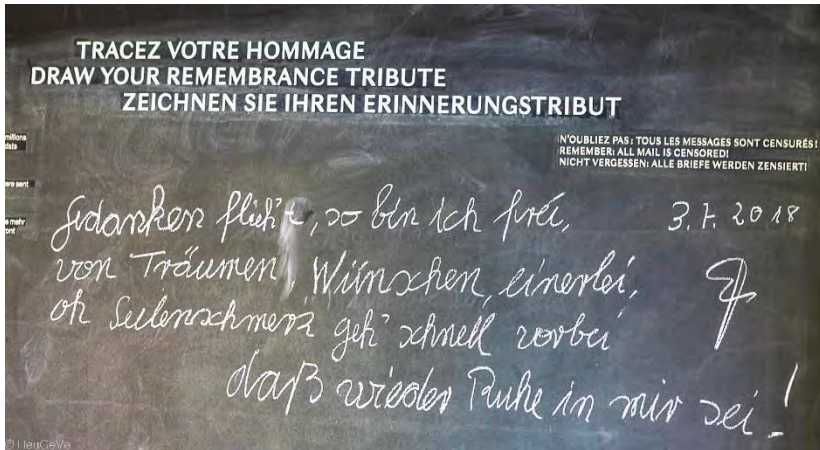 TRACEZ VOTRE HOMMAGE
DRAW YOUR REMEMBRANCE TRIBUTE
ZEICHNEN SIE IHREN ERINNERUNGSTRIBUT
N'OUBLIEZ PAS: TOUS LES MESSAGES SONT CENSURÉS!
REMEMBER: ALL MAIL IS CENSORED!
NICHT VERGESSEN: ALLE BRIEFE WERDEN ZENSIERT!
millions
ere sent
e mehr
ront
Gedanken flieh't, so bin ich frei,
3.7.2018
von Träumen, Wünschen, einerlei,
oh Seelenschmerz geh' schnell vorbei
daß wieder Ruhe in mir sei!
© HeuGeVe